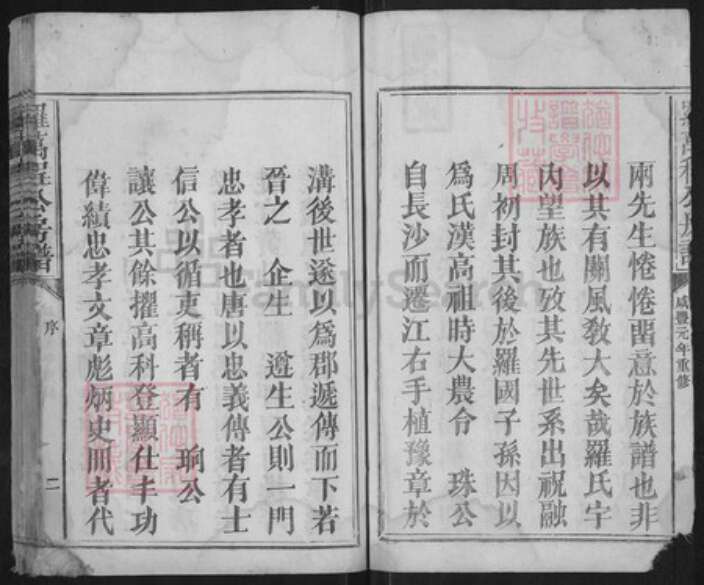 兩先生惓惓畱意於族譜也非
以其有關風敎大矣哉羅氏宇
內望族也攷其先世系出祝融
周初封其後於羅國子孫因以
爲氏漢高祖時大農令 珠公
自長沙而遷江右手植豫章於
咸豐元年重修
溝後世遂以爲郡遞傳而下若
晉之 企生 遵生公則一門
忠孝者也唐以忠義傳者有士
信公以循吏稱者有 珦公
讓公其餘擢高科登顯仕丰功
偉績忠孝文章彪炳史冊者代
羅萬程公房譜
序
二
FamilySearch